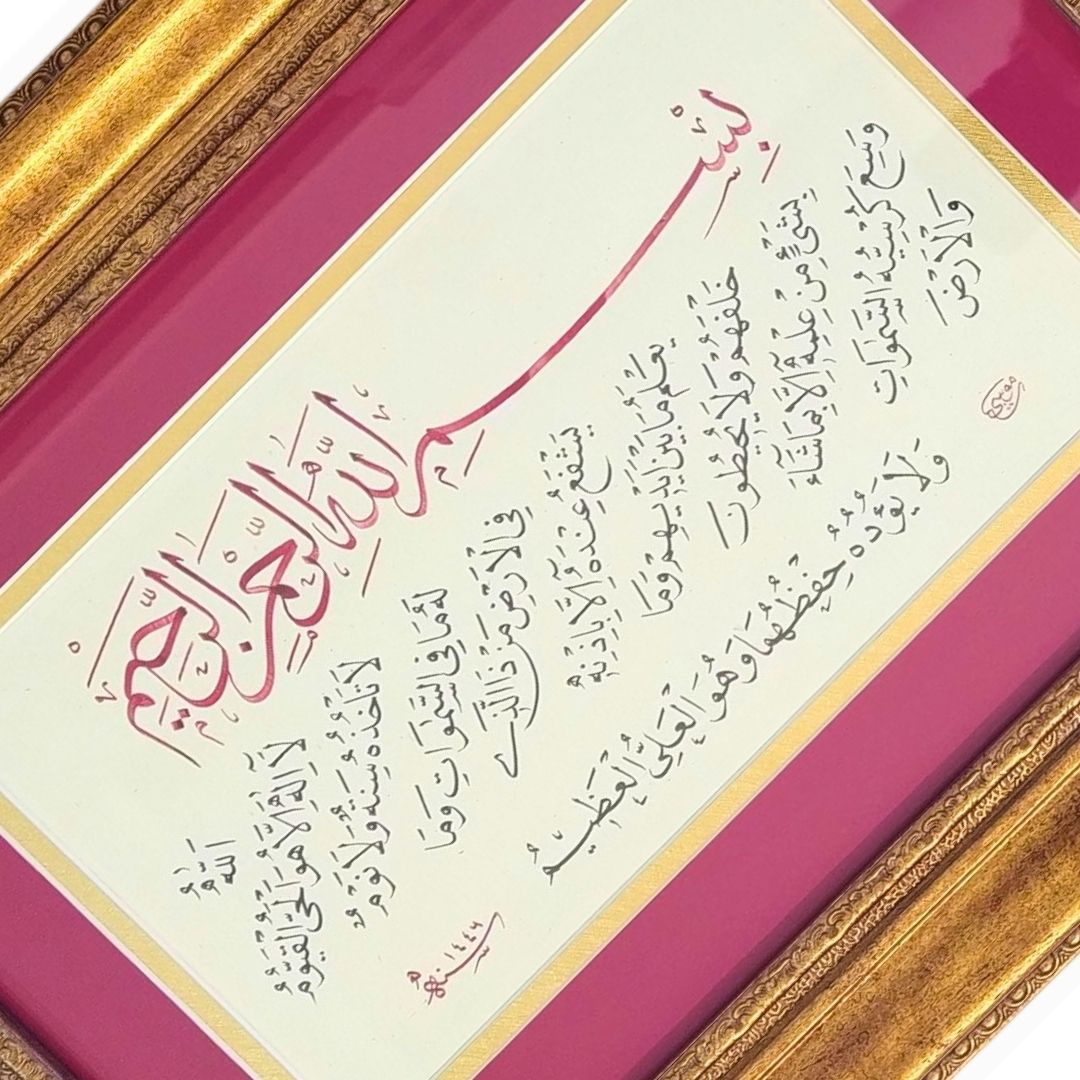 بِسْمِ اللّٰهِ الرَّحْمٰنِ الرَّحِيمِ
اَللّٰهُ
لَا إِلٰهَ إِلَّا هُوَ الْحَيُّ الْقَيُّومُ
لَا تَأْخُذُهُ سِنَةٌ وَلَا نَوْمٌ
لَهُ مَا فِي السَّمٰوَاتِ وَمَا
فِي الْأَرْضِ مَنْ ذَا الَّذِي
يَشْفَعُ عِنْدَهُ إِلَّا بِإِذْنِهِ
يَعْلَمُ مَا بَيْنَ أَيْدِيهِمْ وَمَا
خَلْفَهُمْ وَلَا يُحِيطُونَ
بِشَيْءٍ مِنْ عِلْمِهِ إِلَّا بِمَا شَاءَ
وَسِعَ كُرْسِيُّهُ السَّمٰوَاتِ
وَالْأَرْضَ
وَلَا يَؤُدُهُ حِفْظُهُمَا وَهُوَ الْعَلِيُّ الْعَظِيمُ
سنة ١٤٤٦ هـ